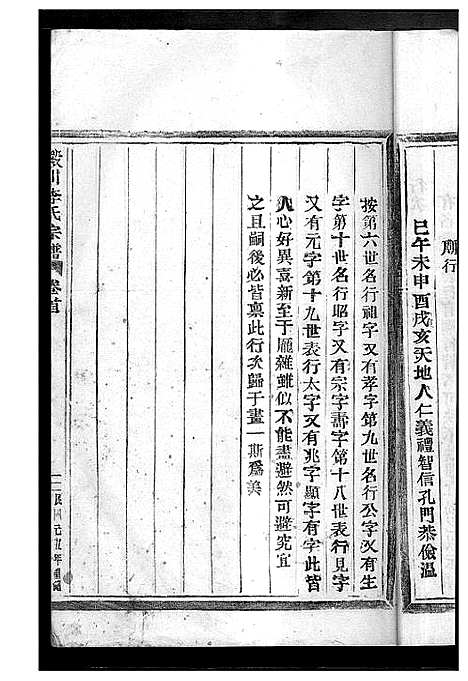 廟行
巳午未申酉戌亥天地人仁義禮智信孔門恭儉溫
按第六世名行祖字又有孝字第九世名行公字又有生
字第十世名行昭字又有宗字壽字第十八世表行見字
又有元字第十九世表行太字又有兆字顯字有字此皆
人心好異喜新至于龐雜雖似不能盡避然可避究宜
之且嗣後必皆稟此行次歸于畫一斯爲美
川李氏宗譜 卷首
民國元九年重